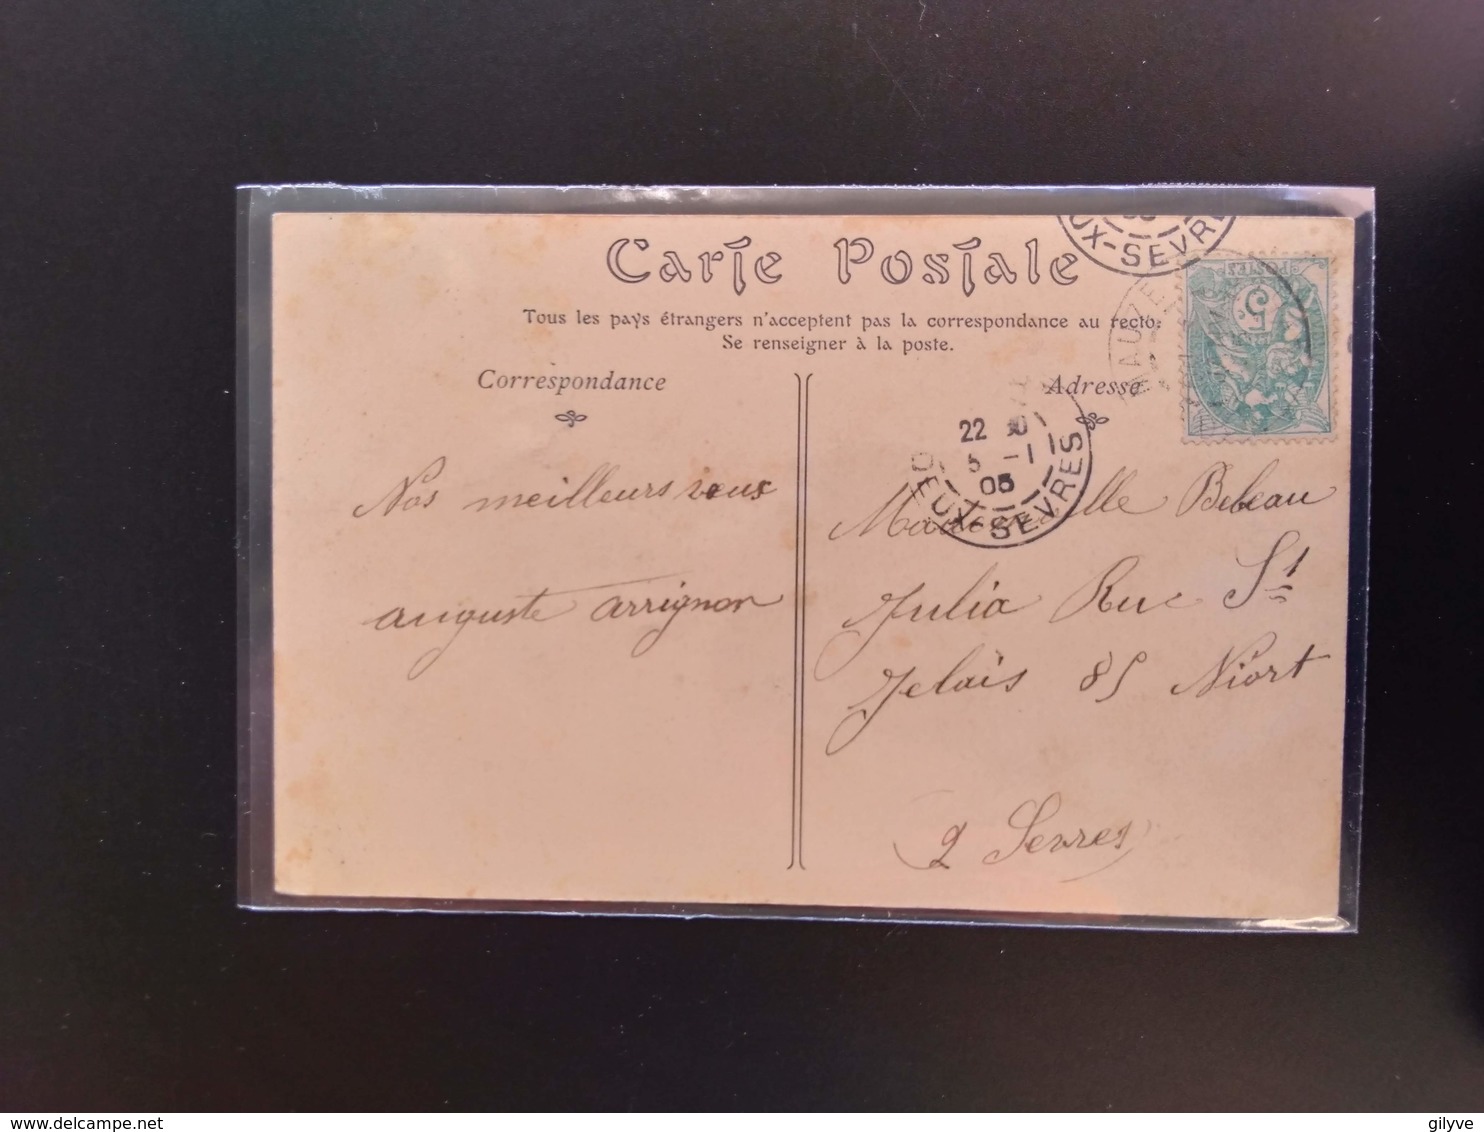 Carte Postale
Tous les pays étrangers n'acceptent pas la correspondance au recto.
Se renseigner à la poste.
Correspondance
Nos meilleurs vœux
auguste arrignon
Adresse
Mademoiselle Bebeau
Julia Rue St
Jelais 85 Niort
(2 Sevres)
22
5 -1
05
DEUX-SEVRES
UX-SEVRE
MAUZE
5
www.delcampe.net
gilyve